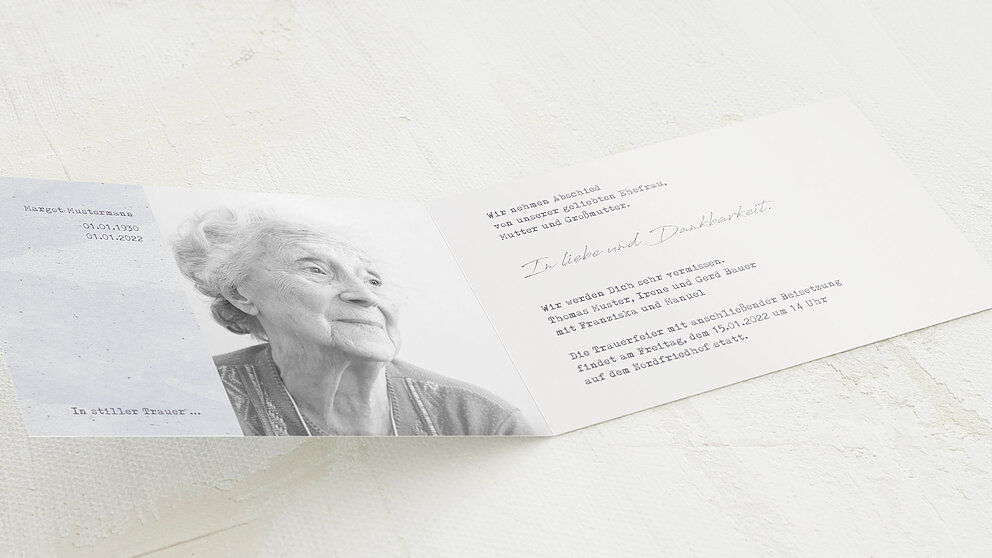 Margot Mustermann
01.01.1930
01.01.2022
In stiller Trauer ...
Wir nehmen Abschied
von unserer geliebten Ehefrau,
Mutter und Großmutter.
In liebe und Dankbarkeit.
Wir werden Dich sehr vermissen.
Thomas Muster, Irene und Gerd Bauer
mit Franziska und Manuel
Die Trauerfeier mit anschließender Beisetzung
findet am Freitag, dem 15.01.2022 um 14 Uhr
auf dem Nordfriedhof statt.